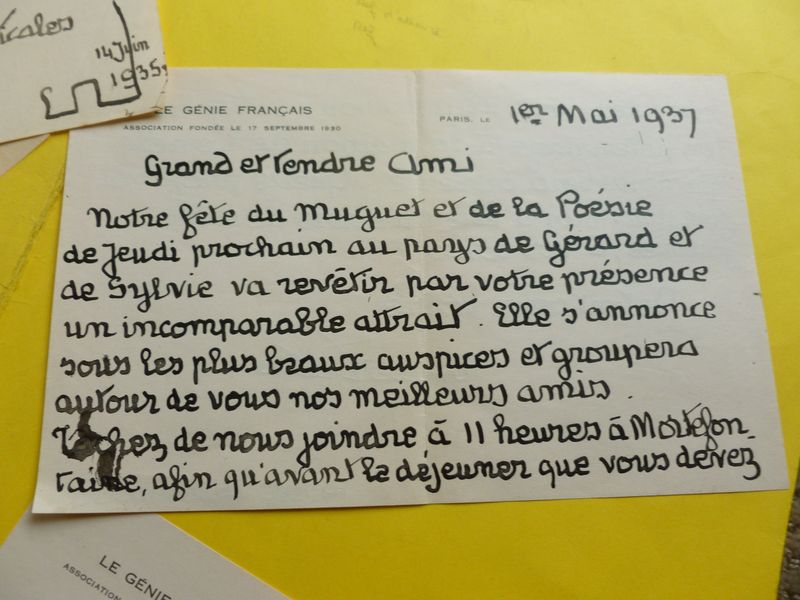 14 Juin
1935.
LE GÉNIE FRANÇAIS
ASSOCIATION FONDÉE LE 17 SEPTEMBRE 1930
PARIS, LE 1er Mai 1937
Grand et tendre Ami
Notre fête du Muguet et de la Poésie
de Jeudi prochain au pays de Gérard et
de Sylvie va revêtir par votre présence
un incomparable attrait. Elle s'annonce
sous les plus beaux auspices et groupera
autour de vous nos meilleurs amis.
Tâchez de nous joindre à 11 heures à Mortefon-
taine, afin qu'avant le déjeuner que vous devez
LE GÉNIE
ASSOCIATION